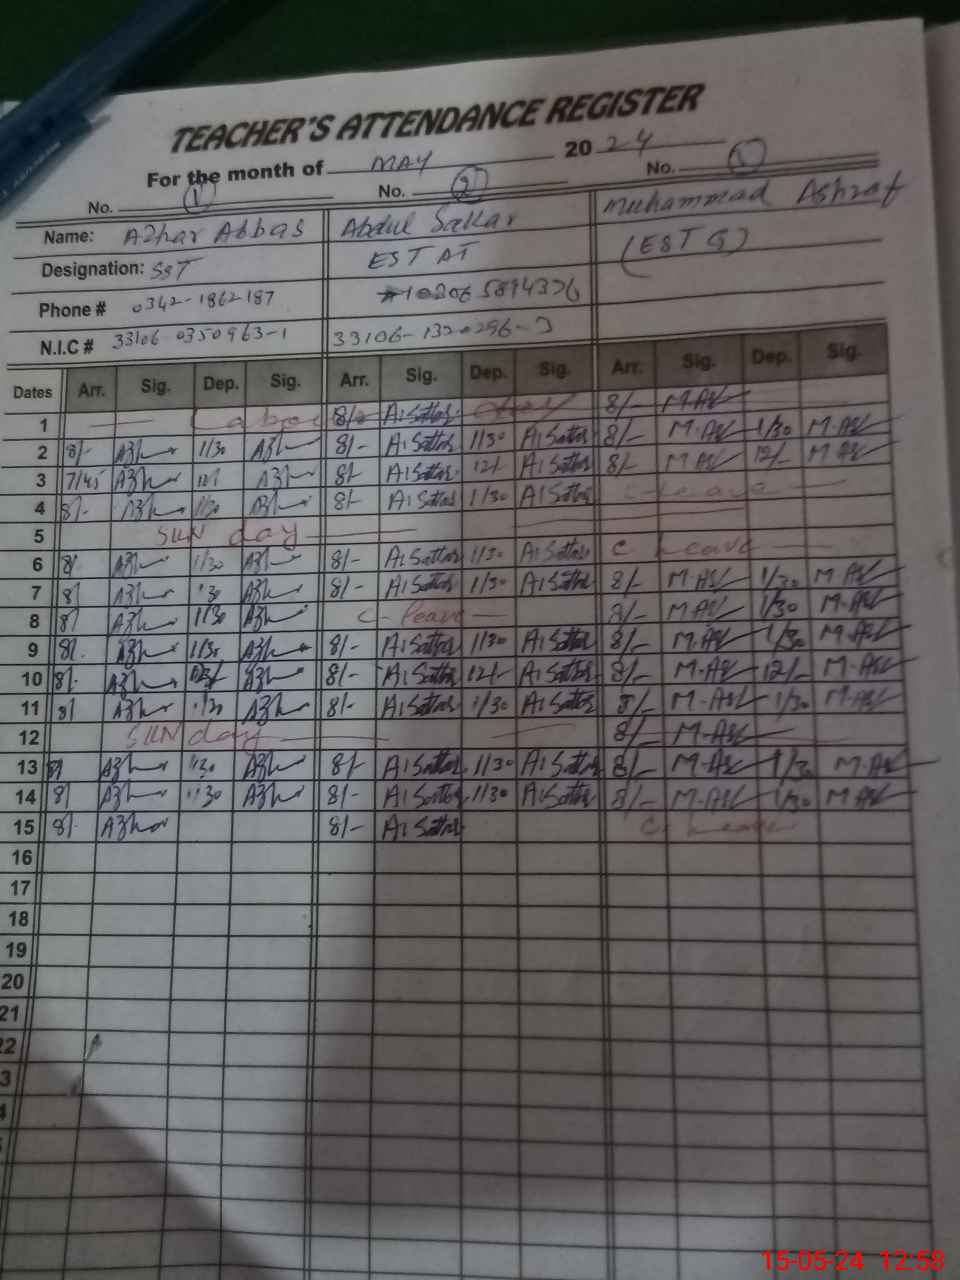 TEACHER'S ATTENDANCE REGISTER
For the month of MAY 2024
No. 1 No. 2 No.
Name: Azhar Abbas Abdul Sattar Muhammad Ashraf
Designation: SST EST AT (EST G)
Phone # 0342-1862187
N.I.C # 33106 0350963-1
Dates Arr. Sig. Dep. Sig. Arr. Sig. Dep. Sig. Arr. Sig. Dep. Sig.
1 Labour 8/- A1Sattar day 8/- M.As
2 8/- Azhar 1/30 Azhar 8/- A1Sattar 1/30 A1Sattar 8/- M.As 1/30 M.As
3 7/45 Azhar Azhar 8/- A1Sattar 12/- A1Sattar 8/- M.As 12/- M.As
4 8/- Azhar 1/30 Azhar 8/- A1Sattar 1/30 A1Sattar leave
5 SUN day
6 8/- Azhar 1/30 Azhar 8/- A1Sattar 1/30 A1Sattar C leave
7 8/ Azhar 1/30 Azhar 8/- A1Sattar 1/30 A1Sattar 8/- M.As 1/30 M.As
8 8/ Azhar 1/30 Azhar C-leave 8/- M.As 1/30 M.As
9 8/- Azhar 1/30 Azhar 8/- A1Sattar 1/30 A1Sattar 8/- M.As 1/30 M.As
10 8/- Azhar Azhar 8/- A1Sattar 12/- A1Sattar 8/- M.As 12/- M.As
11 8/ Azhar 1/30 Azhar 8/- A1Sattar 1/30 A1Sattar 8/- M.As 1/30 M.As
12 SUN day 8/- M.As
13 8/ Azhar 1/30 Azhar 8/- A1Sattar 1/30 A1Sattar 8/- M.As 1/30 M.As
14 8/ Azhar 1/30 Azhar 8/- A1Sattar 1/30 A1Sattar 8/- M.As 1/30 M.As
15 8/- Azhar 8/- A1Sattar C leave
16
17
18
19
20
21
22
3
4
15-05-24 12:58